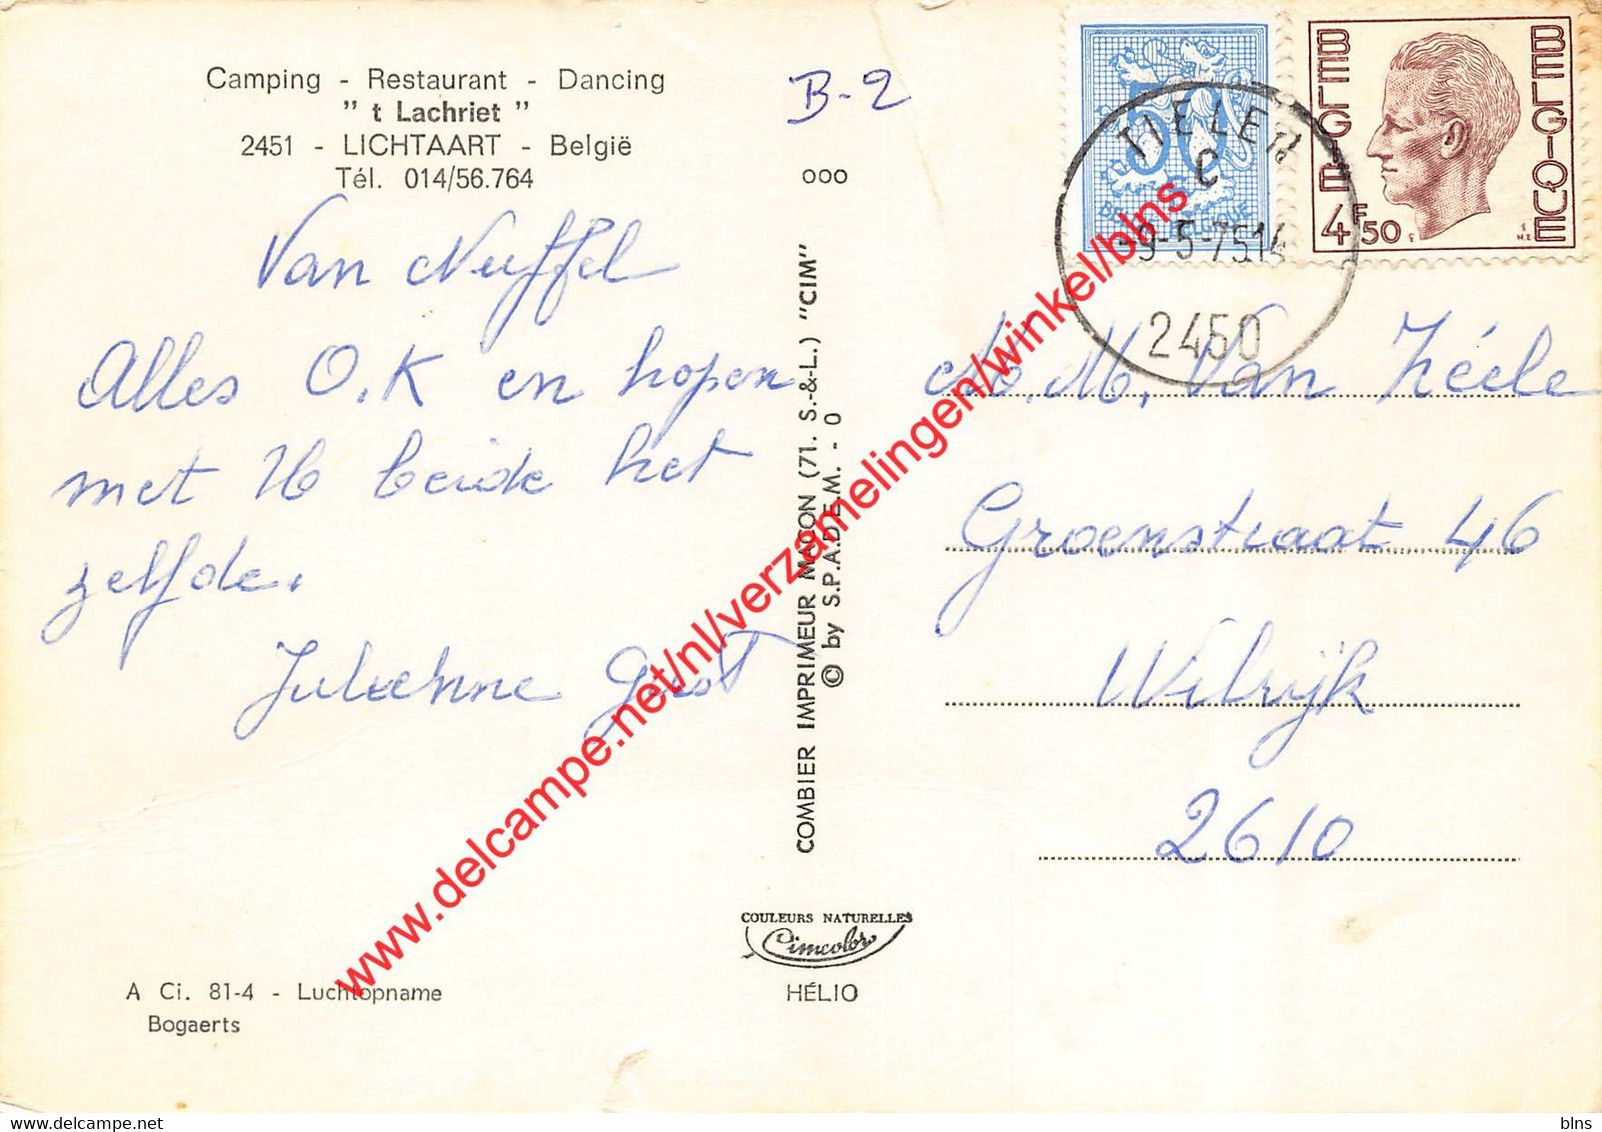 Camping - Restaurant - Dancing
" t Lachriet "
2451 - LICHTAART - België
Tél. 014/56.764
B-2
000
Van Nuffel
Alles O.K en hopen
met U beide het
zelfde.
Julienne
COMBIER IMPRIMEUR MACON (71. S.-&-L.) "CIM"
© by S.P.A.D.E.M. - 0
COULEURS NATURELLES
Cimcolor
HÉLIO
A Ci. 81-4 - Luchtopname
Bogaerts
50
BELGIE BELGIQUE
BELGIË
BELGIQUE
4F50
TIELEN
C
-9-5-75 14
2450
M. Van Zéele
Groenstraat 46
Wilrijk
2610
www.delcampe.net/nl/verzamelingen/winkel/blns
blns